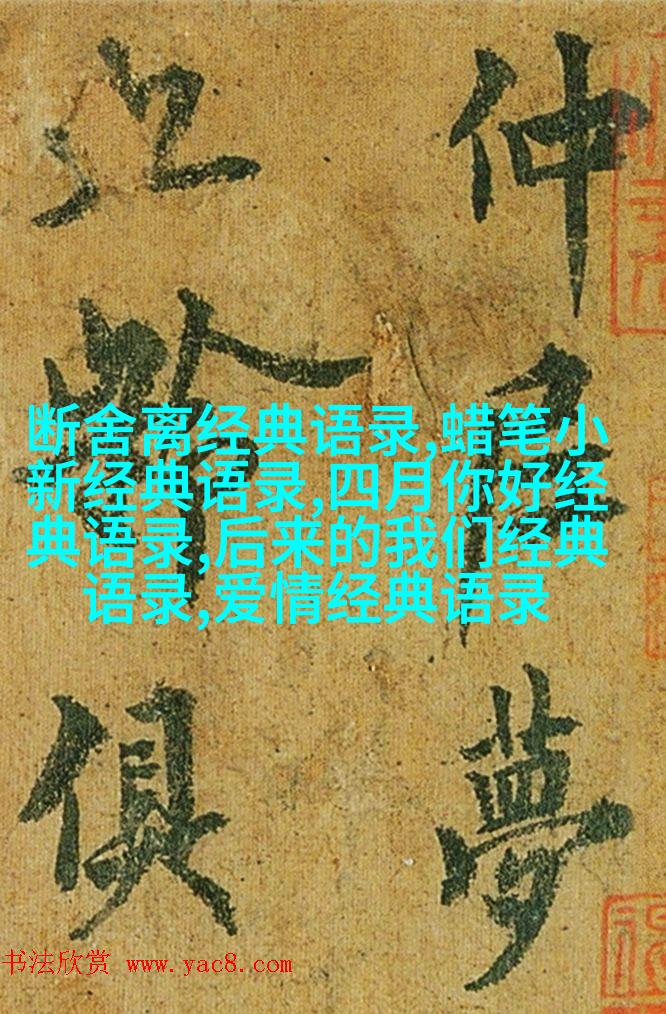 仲尼夢
齡俱
断舍离经典语录,蜡笔小
新经典语录,四月你好经
典语录,后来的我们经典
语录,爱情经典语录
书法欣赏 www.yac8.com